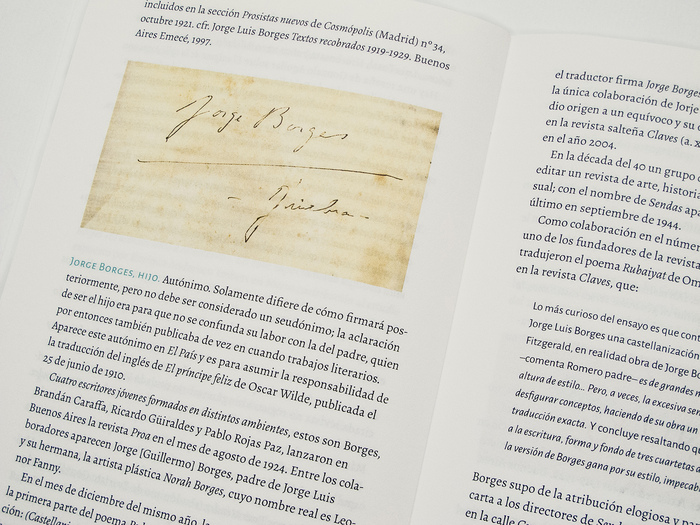 incluidos en la sección Prosistas nuevos de Cosmópolis (Madrid) nº 34,
octubre 1921. cfr. Jorge Luis Borges Textos recobrados 1919-1929. Buenos
Aires Emecé, 1997.
Jorge Borges
JORGE BORGES, HIJO. Autónimo. Solamente difiere de cómo firmará pos-
teriormente, pero no debe ser considerado un seudónimo; la aclaración
de ser el hijo era para que no se confunda su labor con la del padre, quien
por entonces también publicaba de vez en cuando trabajos literarios.
Aparece este autónimo en El País y es para asumir la responsabilidad de
la traducción del inglés de El príncipe feliz de Oscar Wilde, publicada el
25 de junio de 1910.
Cuatro escritores jóvenes formados en distintos ambientes, estos son Borges,
Brandán Caraffa, Ricardo Güiraldes y Pablo Rojas Paz, lanzaron en
Buenos Aires la revista Proa en el mes de agosto de 1924. Entre los cola-
boradores aparecen Jorge [Guillermo] Borges, padre de Jorge Luis
y su hermana, la artista plástica Norah Borges, cuyo nombre real es Leo-
nor Fanny.
En el mes de diciembre del mismo año, la
la primera parte del poema
ción: (Castellani
el traductor firma Jorge Borges
la única colaboración de Jorje
dio origen a un equívoco y su
en la revista salteña Claves (a. x
en el año 2004.
En la década del 40 un grupo
editar un revista de arte, historia
sual; con el nombre de Sendas apa
último en septiembre de 1944.
Como colaboración en el númer
uno de los fundadores de la revista
tradujeron el poema Rubaiyat de Om
en la revista Claves, que:
Lo más curioso del ensayo es que cont
Jorge Luis Borges una castellanización
Fitzgerald, en realidad obra de Jorge Bo
–comenta Romero padre– es de grandes m
altura de estilo... Pero, a veces, la excesiva ser
desfigurar conceptos, haciendo de su obra un
traducción exacta. Y concluye resaltando q
a la escritura, forma y fondo de tres cuartetas d
la versión de Borges gana por su estilo, impecab
Borges supo de la atribución elogiosa y
carta a los directores de
en la calle